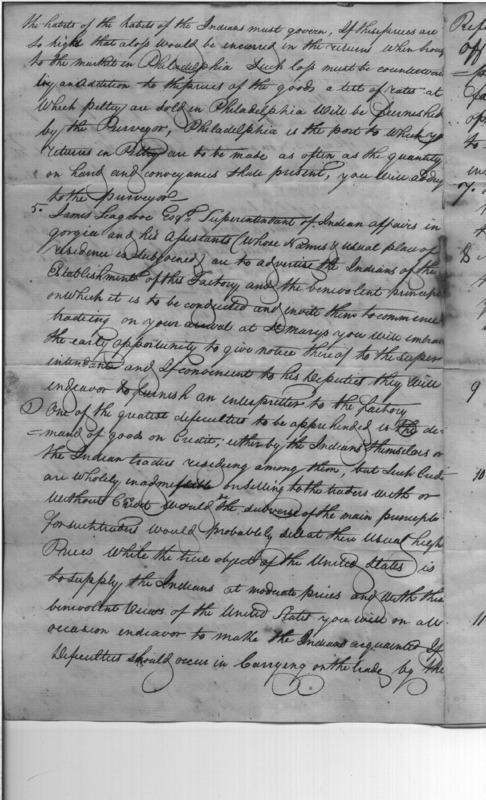 the habits of the habits of the Indians must govern, If these prices are
so high that a loss would be incurred in the returns when brought
to the market in Philadelphia Such loss must be countervailed
by an addition to the prices of the goods a test of rates at
which peltry are sold in Philadelphia will be furnished
by the Purveyor, Philadelphia is the port to which ye
returns in Peltry are to be made as often as the quantity
on hand and conveyances shall present, you will address
to the purveyor
5. James Seagrove Esqr Superintendant of Indian affairs in
gorgia and his Assistants (whose Names & usual place of
residence is subjoined) are to advertise the Indians of the
Establishment of this Factory and the benevolent principle
on which it is to be conducted and invite them to commence
tradeing on your arrival at St marys you will embrace
the early opportunity to give notice thereof to the super
intendant and If convenient to his Deputies they will
endeavor to furnish an interpretter to the factory
One of the greatest difeculties to be apprihended is the de-
=mand of goods on Credit, either by the Indians themselves or
the Indian traders resideing among them, but such Credits
are wholely inadmissible or selling to the traders with or
without Credit would be the subverse of the main principle
for such traders would probablely sell at their usual high
Prices while the true object of the United States is
to supply the Indians at moderate prices and with this
binevolent views of the United States you will on all
occasion endeavor to make the Indians acquainted If
Difeculties should occur in Carrying on the trade by the
Rep
off
7.
8
9
10
11